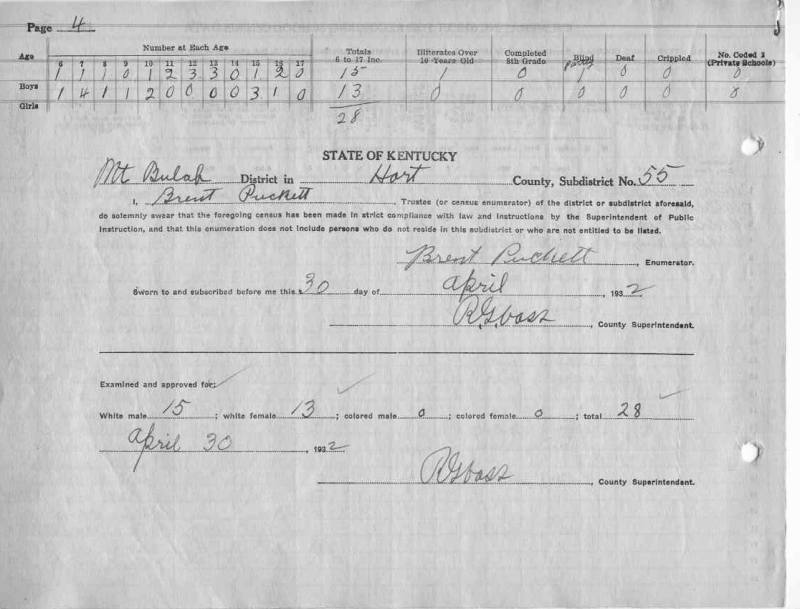 Page 4
Age Number at Each Age Totals 6 to 17 Inc. Illiterates Over 10 Years Old Completed 8th Grade Blind Deaf Crippled No. Coded 3 (Private Schools)
6 7 8 9 10 11 12 13 14 15 16 17
Boys 1 1 1 0 1 2 3 3 0 1 2 0 15 1 0 partly 1 0 0 0
Girls 1 4 1 1 2 0 0 0 0 3 1 0 13 0 0 0 0 0 0
28
STATE OF KENTUCKY
Mt Bulah District in Hart County, Subdistrict No. 55
I, Brent Puckett, Trustee (or census enumerator) of the district or subdistrict aforesaid,
do solemnly swear that the foregoing census has been made in strict compliance with law and instructions by the Superintendent of Public
Instruction, and that this enumeration does not include persons who do not reside in this subdistrict or who are not entitled to be listed.
Brent Puckett, Enumerator.
Sworn to and subscribed before me this 30 day of April, 1932
County Superintendent.
Examined and approved for:
White male 15; white female 13; colored male 0; colored female 0; total 28
April 30, 1932
County Superintendent.